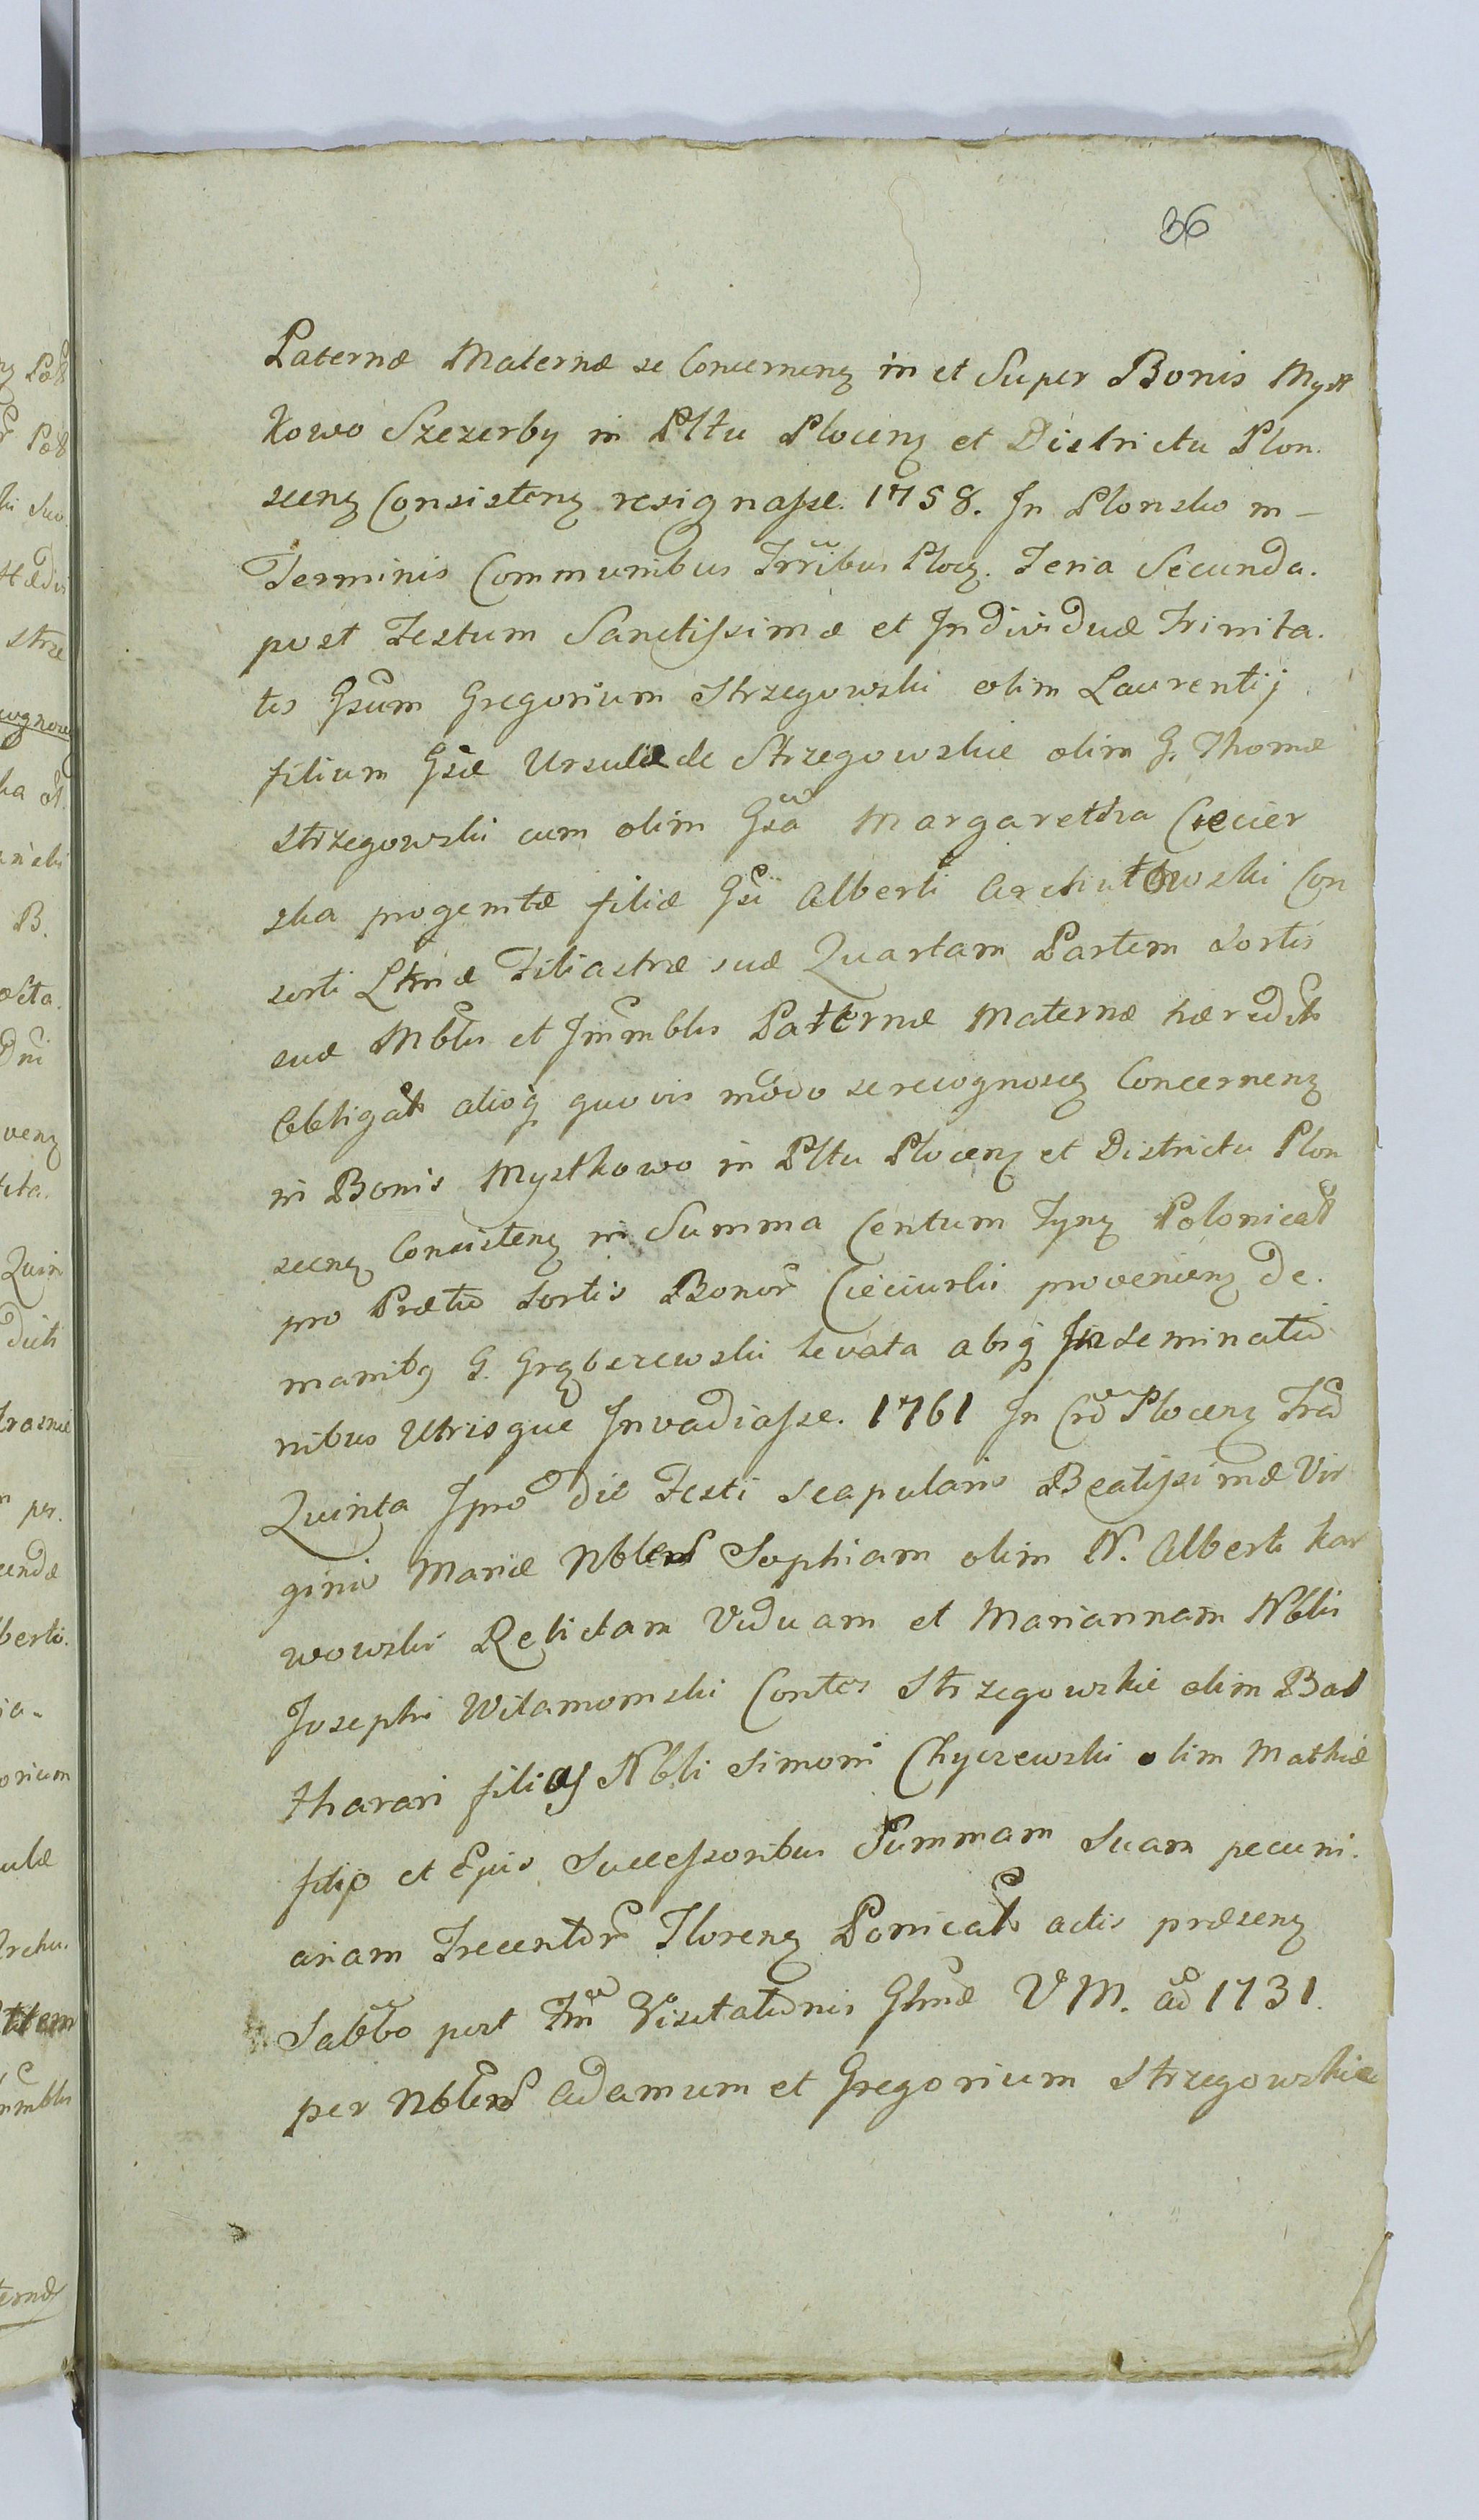 36
Paternæ Maternæ se Concernenʒ in et Super Bonis Myst
kowo Szczerby in Pltu Plocenʒ et Districtu Plon.
scenʒ Consistenʒ resignasse. 1758. In Plonsko in –
Terminis Communibus Trribus Plocʒ. Feria Secunda.
post Festum Sanctissimæ et Individuæ Trinita.
tis Gsum Gregorium Strzegowski olim Laurentij
filium Gsæ Ursulæ de Strzegowskie olim G. Thomæ
Strzegowski cum olim Gsa Margaretha Ciecier
ska progenitæ filiæ Gsi Alberti Archutowski Con
sorti Ltmæ Filiastræ suæ Quartam Partem Sortis
suæ Mblis et Immblis Paternæ Maternæ hæredit
Obligat alioq quovis modo se recognoscʒ Concernenʒ
in Bonis Mystkowo in Pltu Plocenʒ et Districtu Plon
scenʒ Consistenʒ in Summa Centum Tynʒ Polonical
pro Prætio Sortis Bonor Cieciurki provenienʒ de.
manibʒ G. Grębczewski levata absq Inseminatio
nibus Utrisque Invadiasse. 1761 In Crd Plocenʒ Frd
Quinta Ipso die Festi Scapularis Beatissimæ Vir
ginis Mariæ Nbles Sophiam olim N. Alberti kar
wowski Relictam Viduam et Mariannam Nblis
Josephi Wilamowski Contes Strzegowskie olim Bal
tharari filias Nbli Simoni Chyczewski olim Mathiæ
filio et Ejus Successoribus Summam Suam pecuni.
ariam Trecentor Florenʒ Ponical actis præsenʒ
Sabbo post Fm Visitationis Glmæ V M. ad 1731.
per Nbles Adamum et Gregorium Strzegowskie